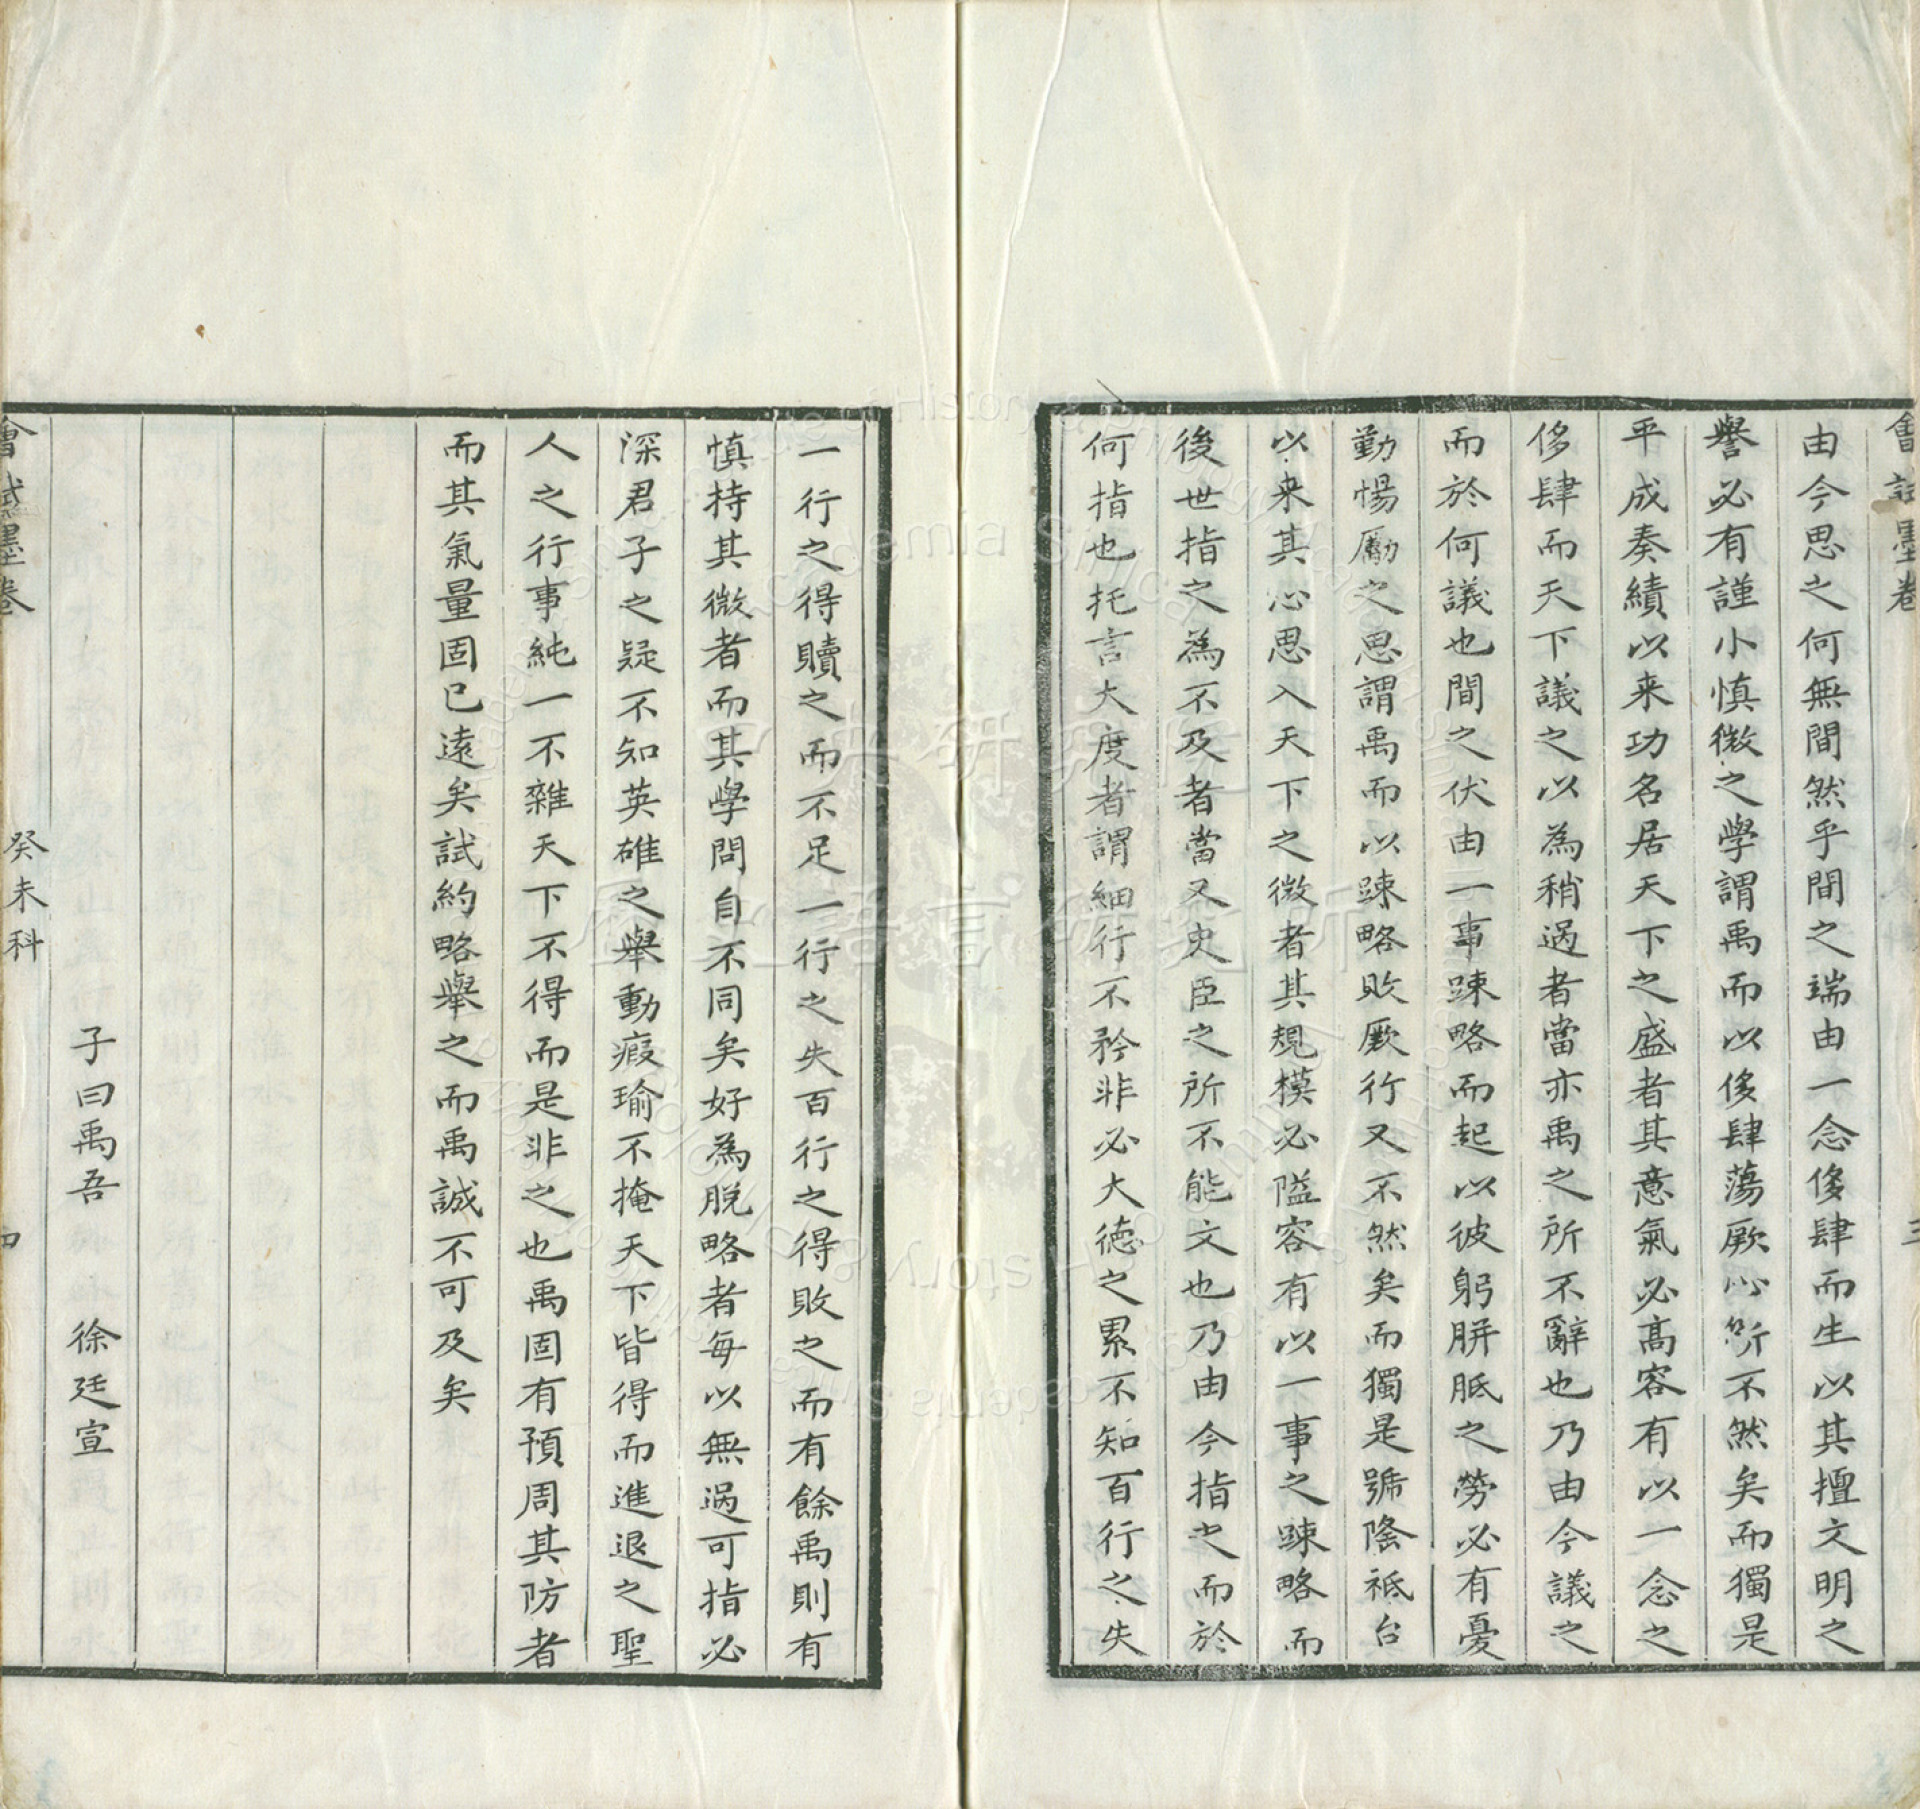 會試墨卷 三
由今思之何無間然乎間之端由一念侈肆而生以其擅文明之
譽必有謹小慎微之學謂禹而以侈肆蕩厥心所不然矣而獨是
平成奏績以来功名居天下之盛者其意氣必高容有以一念之
侈肆而天下議之以為稍過者當亦禹之所不辭也乃由今議之
而於何議也間之伏由一事踈略而起以彼躬胼胝之勞必有憂
勤惕勵之思謂禹而以踈略敗厥行又不然矣而獨是號隂祗台
以来其心思入天下之微者其規模必隘容有以一事之踈略而
後世指之為不及者當又史臣之所不能文也乃由今指之而於
何指也托言大度者謂細行不矜非必大徳之累不知百行之失
一行之得贖之而不足一行之失百行之得敗之而有餘禹則有
慎持其微者而其學問自不同矣好為脱略者每以無過可指必
深君子之疑不知英雄之舉動瘕瑜不掩天下皆得而進退之聖
人之行事純一不雜天下不得而是非之也禹固有預周其防者
而其氣量固已遠矣試約略舉之而禹誠不可及矣
子曰禹吾 徐廷宣
會試墨卷 癸未科 四
中央研究院
歷史語言研究所